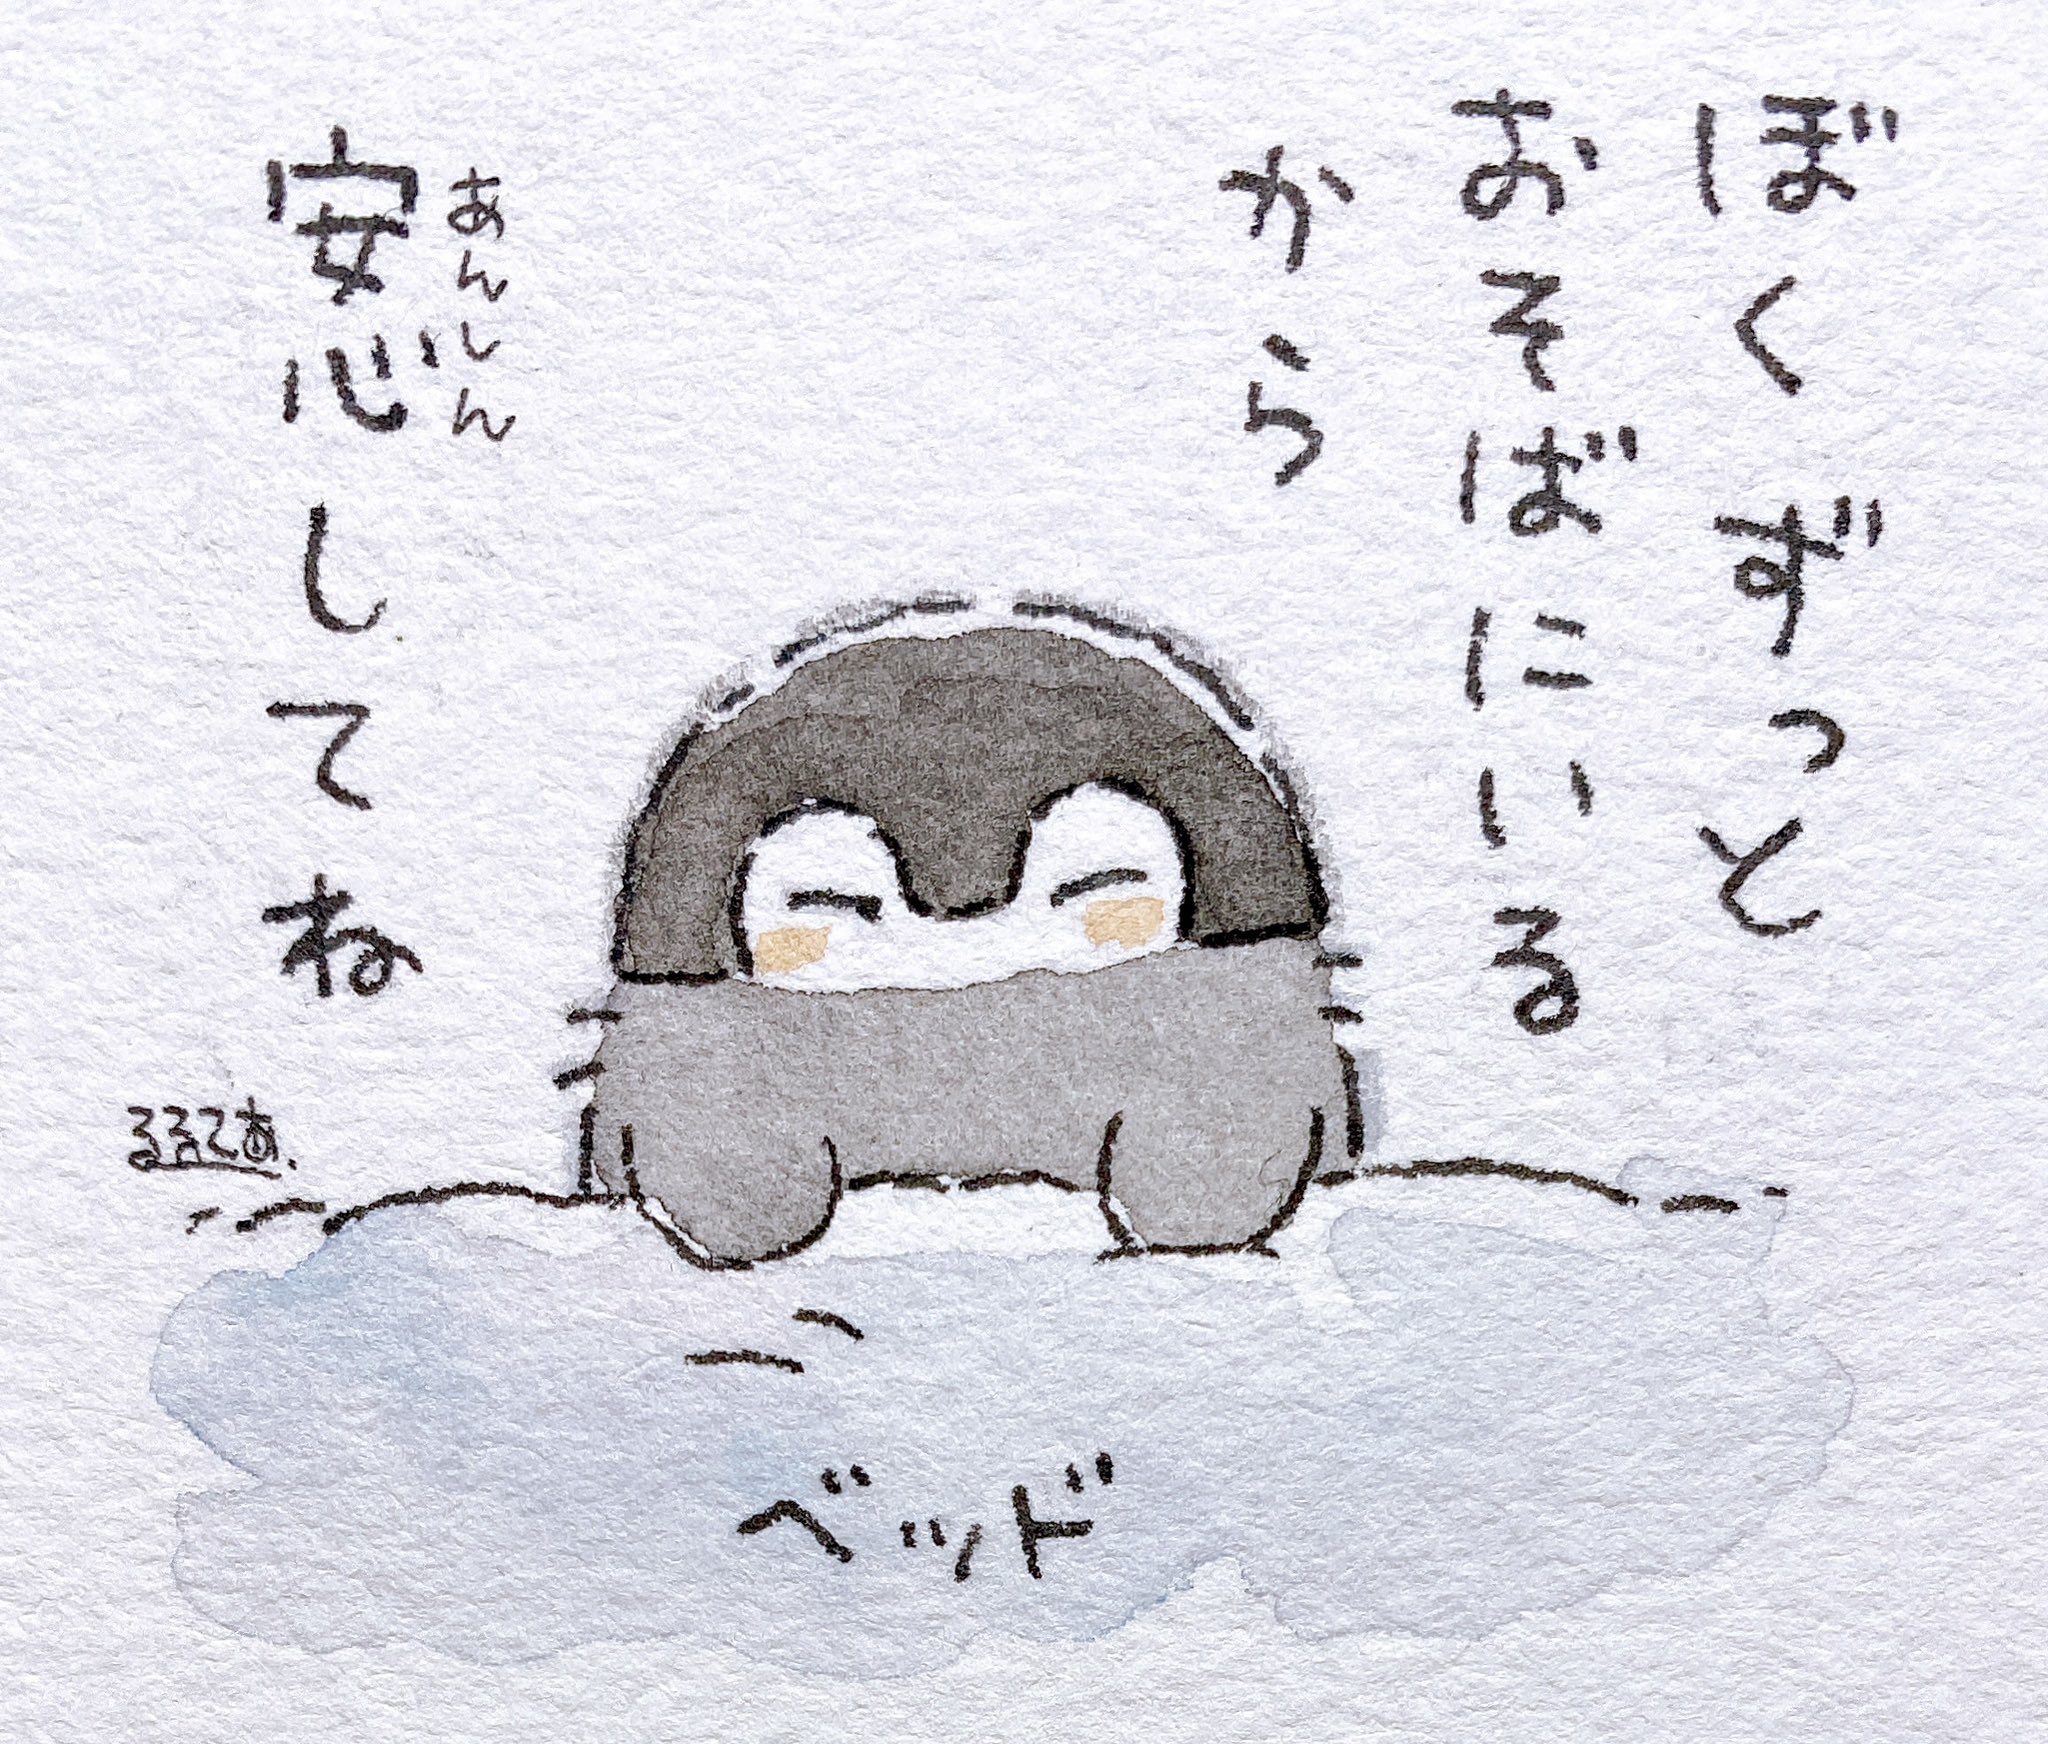 ぼくずっと
おそばにいる
から
安心してね
あんしん
ベッド
るるてあ